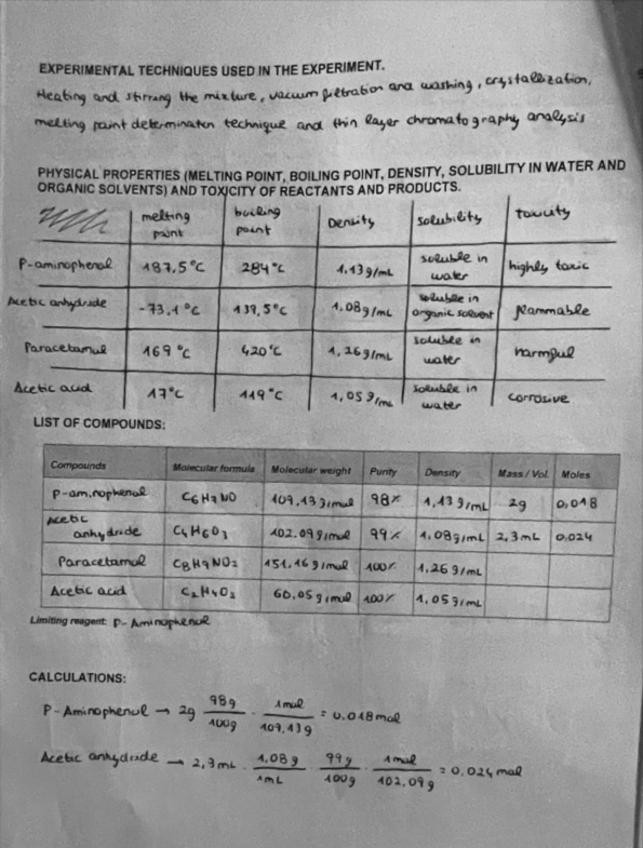 EXPERIMENTAL TECHNIQUES USED IN THE EXPERIMENT.
Heating and stirring the mixture, vacuum filtration and washing, crystallization,
melting point determination technique and thin layer chromatography analysis
PHYSICAL PROPERTIES (MELTING POINT, BOILING POINT, DENSITY, SOLUBILITY IN WATER AND
ORGANIC SOLVENTS) AND TOXICITY OF REACTANTS AND PRODUCTS.
melting point boiling point Density solubility toxicity
P-aminophenol 187.5°C 284°C 1.13g/mL soluble in water highly toxic
Acetic anhydride -73,1 °C 139,5°C 1.08g/mL soluble in organic solvent flammable
Paracetamol 169 °C 420°C 1,26g/mL soluble in water harmful
Acetic acid 17°C 119°C 1,05 g/mL soluble in water corrosive
LIST OF COMPOUNDS:
Compounds Molecular formula Molecular weight Purity Density Mass / Vol. Moles
P-aminophenol C6H7NO 109,13g/mol 98% 1,13 g/mL 2g 0,018
Acetic anhydride C4H6O3 102.09g/mol 99% 1.08g/mL 2,3mL 0,024
Paracetamol C8H9NO2 151.16g/mol 100% 1.26g/mL
Acetic acid C2H4O2 60,05g/mol 100% 1,05g/mL
Limiting reagent: P-Aminophenol
CALCULATIONS:
P-Aminophenol → 2g 98g/100g · 1mol/109,13g = 0.018mol
Acetic anhydride → 2,3mL · 1.08g/1mL · 99g/100g · 1mol/102,09g = 0,024 mol